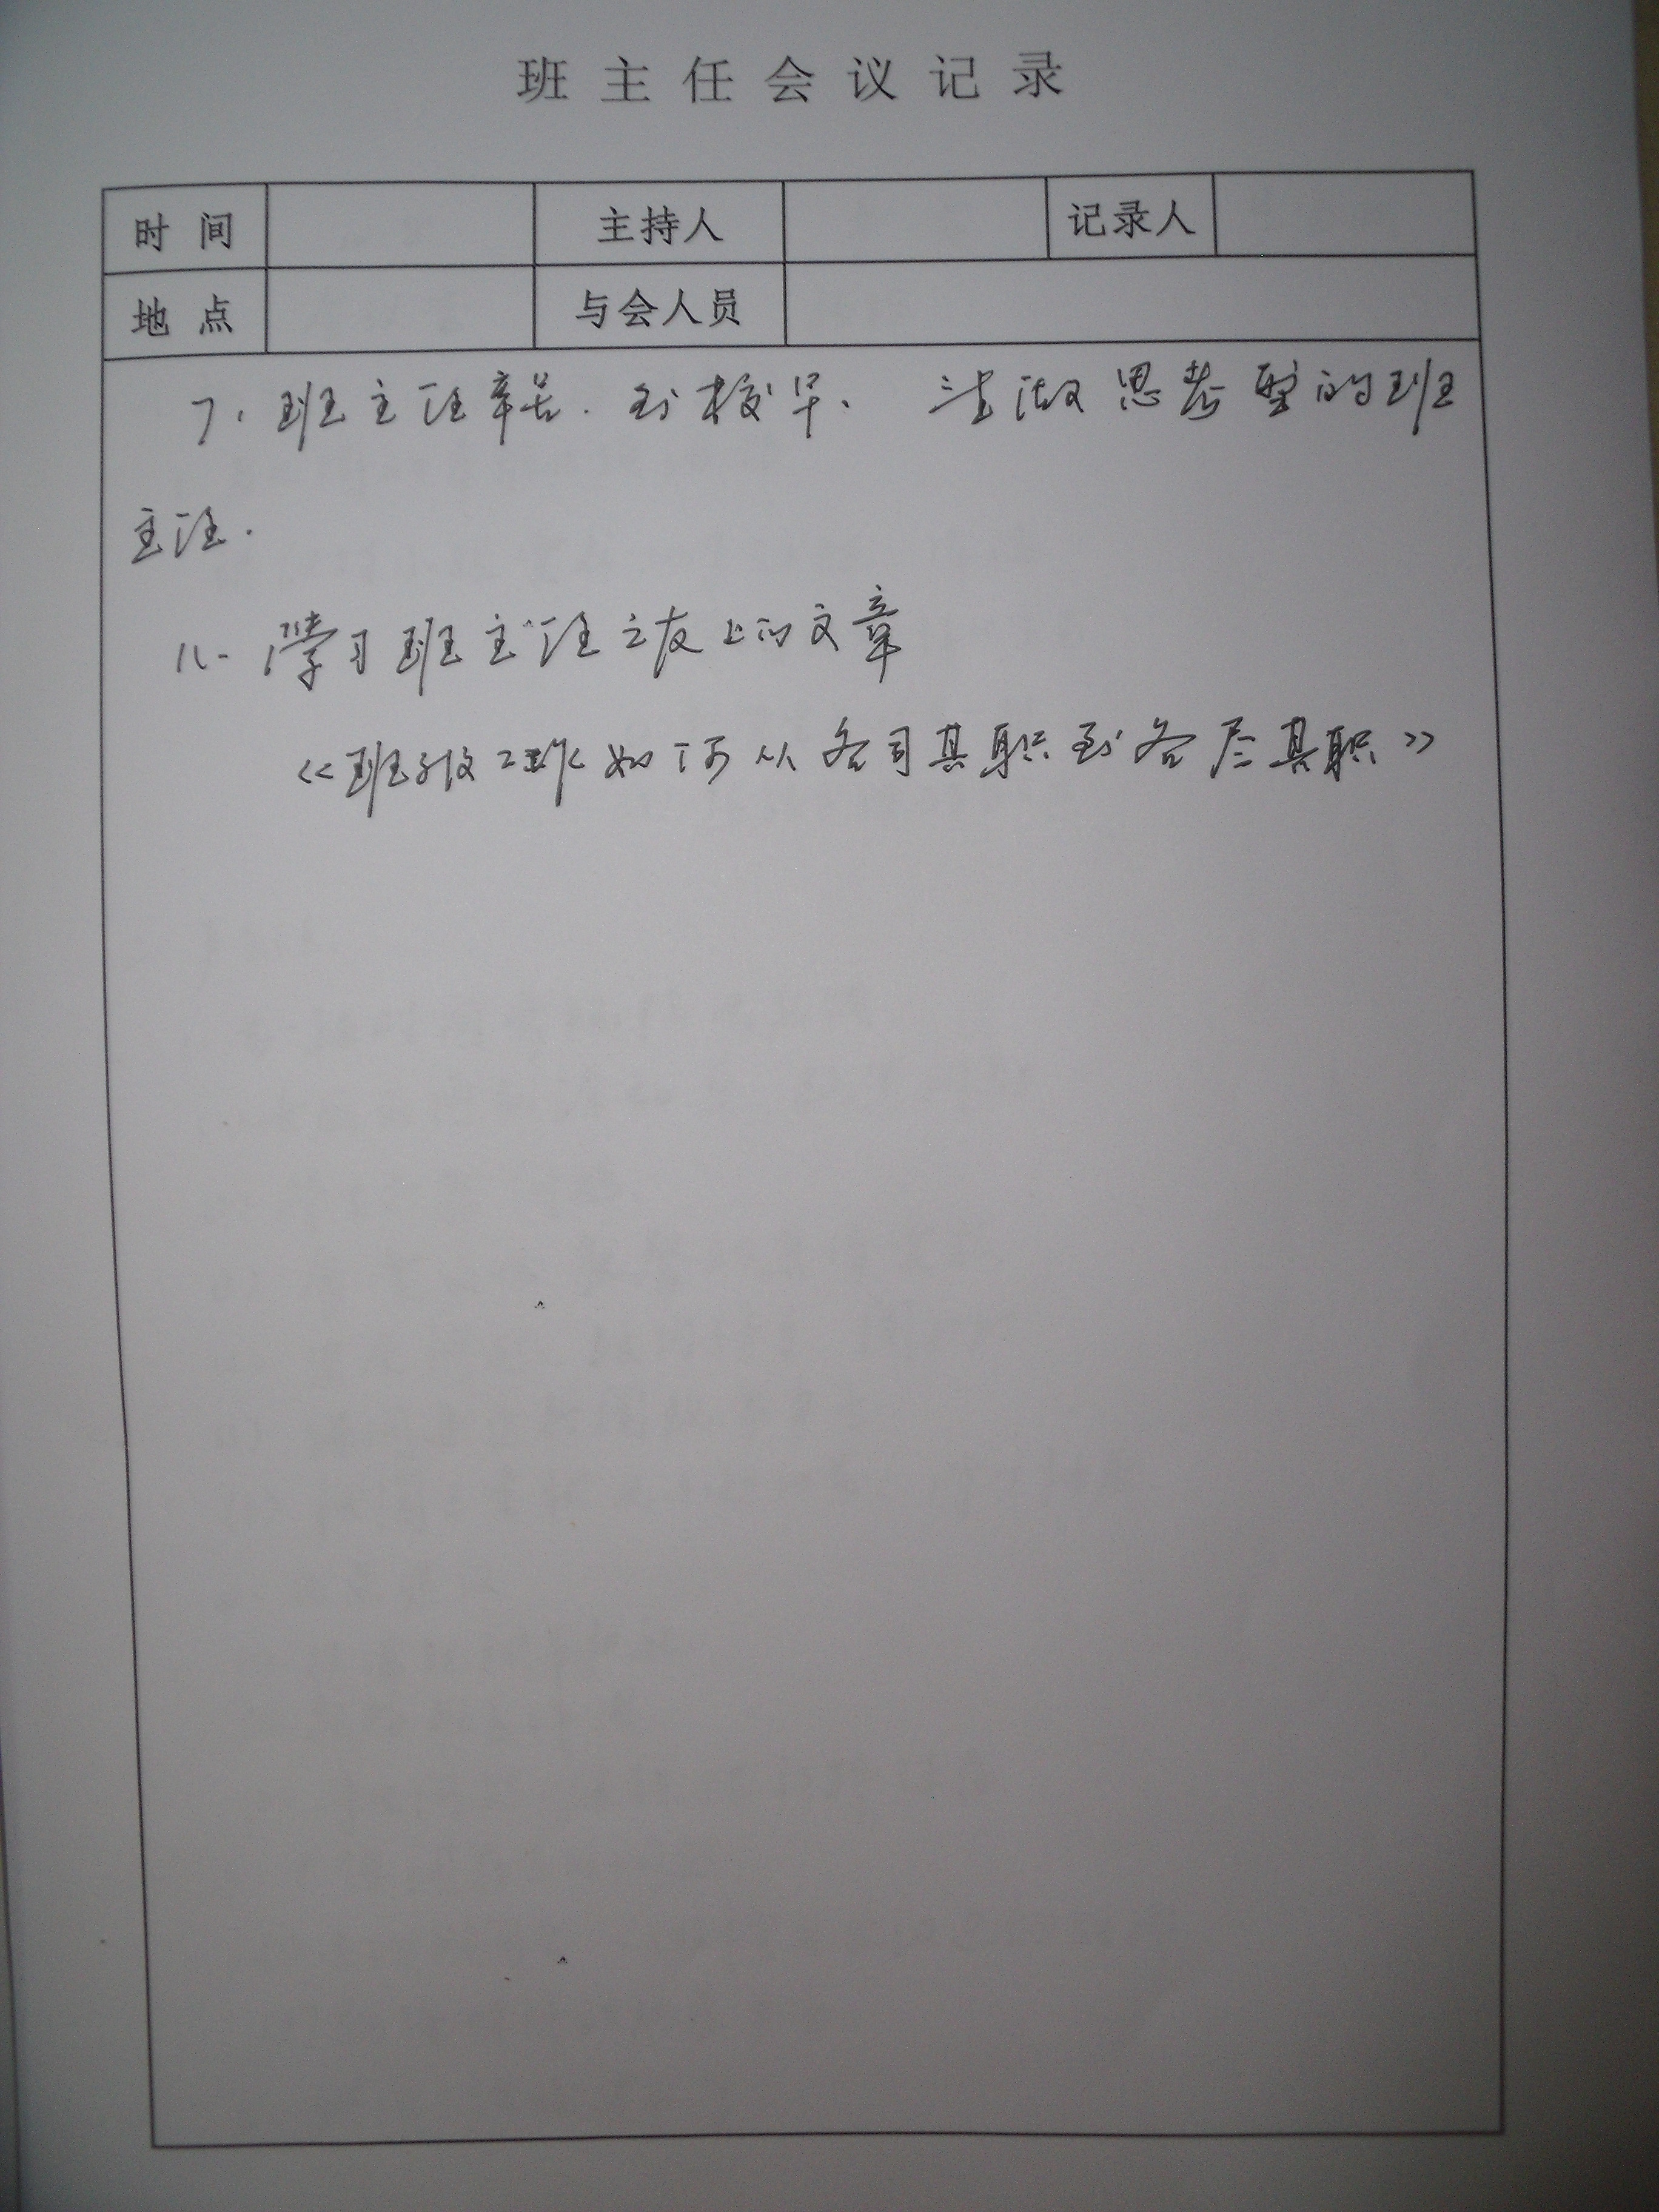 班主任会议记录
时间 主持人 记录人
地点 与会人员
7. 班主任辛苦. 到校早. 望做思考型的班
主任.
八. 学习班主任之友上的文章
《班级工作如何从各司其职到各尽其职》